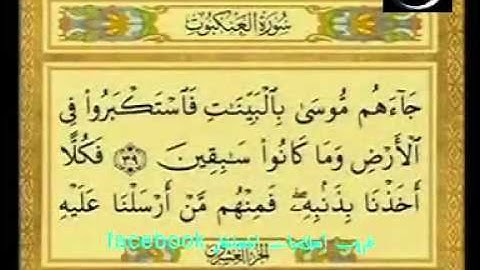 سُورَةُ الْعَنْكَبُوتِ
جَآءَهُم مُّوسَىٰ بِالْبَيِّنَـٰتِ فَاسْتَكْبَرُوا۟ فِى
الْأَرْضِ وَمَا كَانُوا۟ سَـٰبِقِينَ ٣٩ فَكُلًّا
أَخَذْنَا بِذَنۢبِهِۦۖ فَمِنْهُم مَّنْ أَرْسَلْنَا عَلَيْهِ
facebook
الجزء العشرون